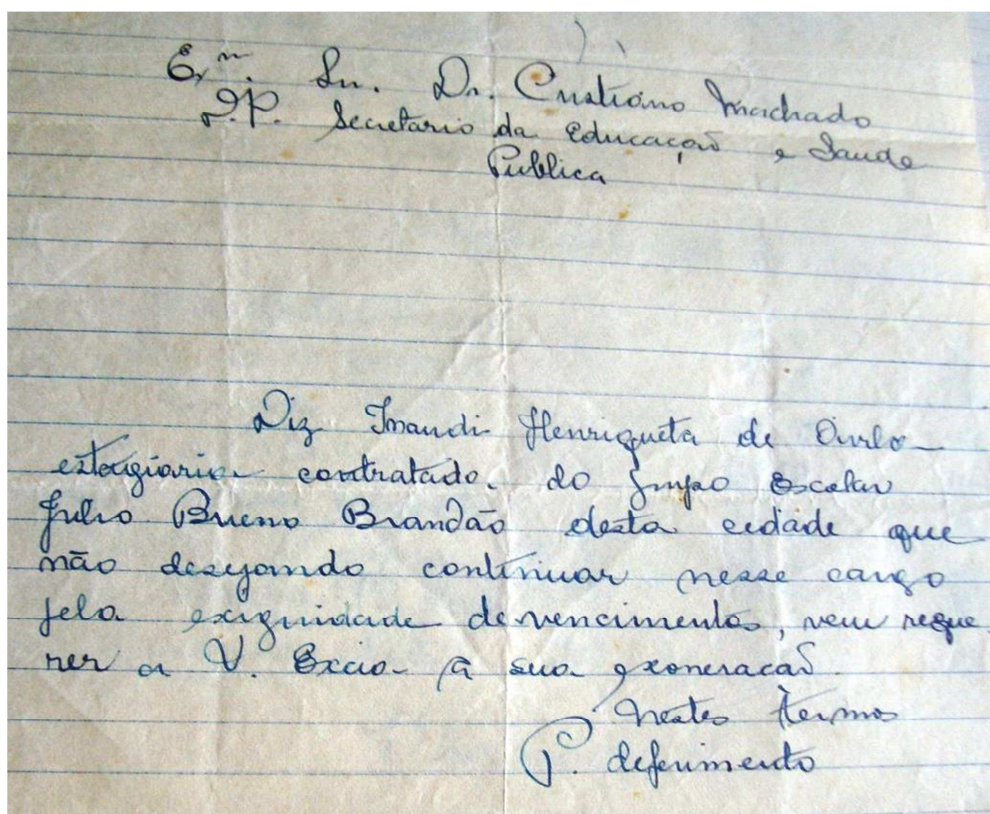 Ex.m Snr. Dr. Cristiano Machado
D.P. Secretario da Educação e Saude
Publica
Diz Henriqueta de
estagiaria contratada do Grupo Escolar
Julio Bueno Brandão desta cidade que
não desejando continuar nesse cargo
pela exiguidade de vencimentos, vem reque
rer a V. Excia a sua exoneração.
Nestes termos
P. deferimento